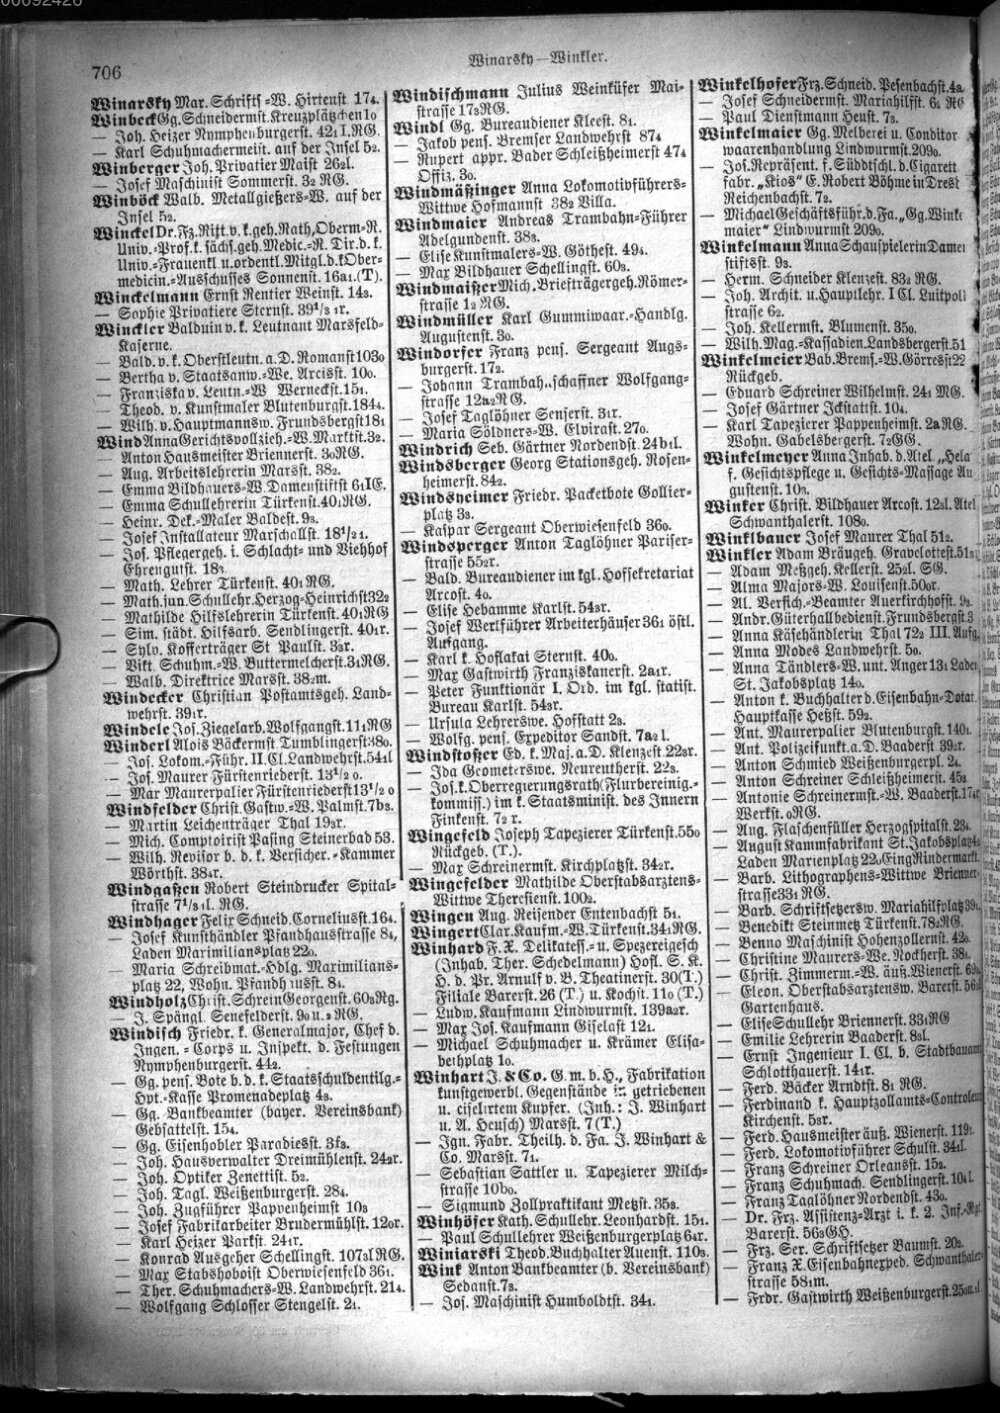 706
Winarsky—Winkler.
Winarsky Mar. Schrifts.=W. Hirtenst. 17 4.
Winbeck Gg. Schneidermst. Kreuzplätzchen 1 0
— Joh. Heizer Nymphenburgerst. 42 1 I.RG.
— Karl Schuhmachermeist. auf der Insel 5 2.
Winberger Joh. Privatier Maist 26 2l.
— Josef Maschinist Sommerst. 3 2 RG.
Winböck Walb. Metallgießers=W. auf der
Insel 5 2.
Winckel Dr. Fz. Ritt. v. k. geh. Rath, Oberm.=R.
Univ.=Prof. k. sächs. geh. Medic.=R. Dir. d. k.
Univ.=Frauenkl. u. ordentl. Mitgl. d. k Ober=
medicin.=Ausschusses Sonnenst. 16 a1. (T).
Winckelmann Ernst Rentier Weinst. 14 3.
— Sophie Privatiere Sternst. 39 1/3 1r.
Winckler Balduin v. k. Leutnant Marsfeld=
Kaserne.
— Bald. v. k. Oberstleutn. a. D. Romanst 10 3 0
— Bertha v. Staatsanw.=We. Arcisst. 10 0.
— Franziska v. Leutn.=W Werneckst. 15 1.
— Theod. v. Kunstmaler Blutenburgst. 18 4 4.
— Wilh. v. Hauptmannsw. Frundsbergst 18 1
Wind Anna Gerichtsvollzieh.=W. Marktst. 3 2.
— Anton Hausmeister Briennerst. 3 0 RG.
— Aug. Arbeitslehrerin Marsst. 38 2.
— Emma Bildhauers=W. Damenstiftst 6 1 IE.
— Emma Schullehrerin Türkenst. 40 1 RG.
— Heinr. Dek.=Maler Baldest. 9 3.
— Josef Installateur Marschallst. 18 1/2 1.
— Jos. Pflegergeh. i. Schlacht= und Viehhof
Ehrengutst. 18 3
— Math. Lehrer Türkenst. 40 1 RG.
— Math. jun. Schullehr. Herzog=Heinrichst 32 2
— Mathilde Hilfslehrerin Türkenst. 40 1 RG
— Sim. städt. Hilfsarb. Sendlingerst. 40 1r.
— Sylv. Kofferträger St Paulst. 3 3r.
— Vikt. Schuhm.=W. Buttermelcherst. 3 1 RG.
— Walb. Direktrice Marsst. 38 2m.
Windecker Christian Postamtsgeh. Land=
wehrst. 39 1r.
Windele Jos. Ziegelarb. Wolfgangst. 11 1 RG
Winderl Alois Bäckermst. Tumblingerst 38 0.
— Jos. Lokom.=Führ. II. Cl. Landwehrst. 54 1l
— Jos. Maurer Fürstenriederst. 13 1/2 0.
— Mar Maurerpalier Fürstenriederst 13 1/2 0
Windfelder Christ. Gastw.=W. Palmst. 7 b3.
— Martin Leichenträger Thal 19 3r.
— Mich. Comptoirist Pasing Steinerbad 53.
— Wilh. Revisor b. d. k. Versicher.=Kammer
Wörthst. 38 4r.
Windgassen Robert Steindrucker Spital=
strasse 7 1/3 1l. RG.
Windhager Felix Schneid. Corneliusst. 16 4.
— Josef Kunsthändler Pfandhausstrasse 8 4,
Laden Maximiliansplatz 22 0.
— Maria Schreibmat.=Hdlg. Maximilians=
platz 22, Wohn. Pfandhausst. 8 4.
Windholz Christ. Schrein Georgenst. 60 3 Rg.
— J. Spängl. Senefelderst. 9 0 u. 2 RG.
Windisch Friedr. k. Generalmajor, Chef d.
Ingen.=Corps u. Inspekt. d. Festungen
Nymphenburgerst. 44 2.
— Gg. pens. Bote b. d. k. Staatsschuldentilg.=
Hpt.=Kasse Promenadeplatz 4 3.
— Gg. Bankbeamter (bayer. Vereinsbank)
Gebsattelst. 15 4.
— Gg. Eisenhobler Paradiesst. 3 f3.
— Joh. Hausverwalter Dreimühlenst. 24 2r.
— Joh. Optiker Zenettist. 5 2.
— Joh. Tagl. Weißenburgerst. 28 4.
— Joh. Zugführer Pappenheimst 10 3
— Josef Fabrikarbeiter Brudermühlst. 12 0r.
— Karl Heizer Parkst. 24 1r.
— Konrad Ausgeher Schellingst. 107 3l RG.
— Max Stabshoboist Oberwiesenfeld 36 1.
— Ther. Schuhmachers=W. Landwehrst. 21 4.
— Wolfgang Schlosser Stengelst. 2 1.
Windischmann Julius Weinküfer Mai=
strasse 17 3 RG.
Windl Gg. Bureaudiener Kleest. 8 1.
— Jakob pens. Bremser Landwehrst 87 4
— Rupert appr. Bader Schleißheimerst 47 4
Offiz. 3 0.
Windmäßinger Anna Lokomotivführers=
Wittwe Hofmannst 38 2 Villa.
Windmaier Andreas Trambahn=Führer
Adelgundenst. 38 3.
— Elise Kunstmalers=W. Göthest. 49 4.
— Max Bildhauer Schellingst. 60 3.
Windmaißer Mich. Briefträgergeh. Römer=
strasse 1 2 RG.
Windmüller Karl Gummiwaar.=Handlg.
Augustenst. 3 0.
Windorfer Franz pens. Sergeant Augs=
burgerst. 17 2.
— Johann Trambah..schaffner Wolfgang=
strasse 12 a2 RG.
— Josef Taglöhner Senserst. 3 1r.
— Maria Söldners=W. Elvirast. 27 0.
Windrich Seb. Gärtner Nordendst. 24 b1l.
Windsberger Georg Stationsgeh. Rosen=
heimerst. 84 2.
Windsheimer Friedr. Packetbote Gollier=
platz 3 3.
— Kaspar Sergeant Oberwiesenfeld 36 0.
Windsperger Anton Taglöhner Pariser=
strasse 55 2r.
— Bald. Bureaudiener im kgl. Hofsekretariat
Arcost. 4 0.
— Elise Hebamme Karlst. 54 3r.
— Josef Werkführer Arbeiterhäuser 36 1 östl.
Aufgang.
— Karl k. Hoflakai Sternst. 40 0.
— Max Gastwirth Franziskanerst. 2 a1r.
— Peter Funktionär I. Ord. im kgl. statist.
Bureau Karlst. 54 3r.
— Ursula Lehrerswe. Hofstatt 2 3.
— Wolfg. pens. Expeditor Sandst. 7 a2 l.
Windstoßer Ed. k. Maj. a. D. Klenzest 22 3r.
— Ida Geometerswe. Neureutherst. 22 3.
— Jos. k. Oberregierungsrath (Flurbereinig.=
kommiss.) im k. Staatsminist. des Innern
Finkenst. 7 2 r.
Wingefeld Joseph Tapezierer Türkenst. 55 0
Rückgeb. (T.).
— Max Schreinermst. Kirchplatzst. 34 2r.
Wingefelder Mathilde Oberstabsarztens=
Wittwe Theresienst. 100 2.
Wingen Aug. Reisender Entenbachst 5 1.
Wingert Clar. Kaufm.=W. Türkenst. 34 1 RG.
Winhard F. X. Delikatess.= u. Spezereigesch
(Inhab. Ther. Schedelmann) Hofl. S. K.
H. d. Pr. Arnulf v. B. Theatinerst. 30 (T.)
Filiale Barerst. 26 (T.) u. Kochst. 11 0 (T.)
— Ludw. Kaufmann Lindwurmst. 139 a2r.
— Max Jos. Kaufmann Giselast 12 1.
— Michael Schuhmacher u. Krämer Elisa=
bethplatz 1 0.
Winhart J. & Co. G. m. b. H., Fabrikation
kunstgewerbl. Gegenstände in getriebenen
u. ciselirtem Kupfer. (Inh.: J. Winhart
u. A. Heusch) Marsst. 7 (T.)
— Ign. Fabr. Theilh. d. Fa. J. Winhart &
Co. Marsst. 7 1.
— Sebastian Sattler u. Tapezierer Milch=
strasse 10 b0.
— Sigmund Zollpraktikant Metzst. 35 3.
Winhöfer Kath. Schullehr. Leonhardst. 15 1.
— Paul Schullehrer Weißenburgerplatz 6 4r.
Winiarski Theod. Buchhalter Auenst. 110 3.
Wink Anton Bankbeamter (b. Vereinsbank)
Sedanst. 7 3.
— Jos. Maschinist Humboldtst. 34 1.
Winkelhofer Frz. Schneid. Pesenbachst. 4 a.
— Josef Schneidermst. Mariahilfst. 6 1 RG
— Paul Dienstmann Heust. 7 3.
Winkelmaier Gg. Melberei u. Conditor
waarenhandlung Lindwurmst. 209 0.
— Jos. Repräsent. f. Süddtschl. d. Cigarett
fabr. „Kios" E. Robert Böhme in Dresd
Reichenbachst. 7 2.
— Michael Geschäftsführ. d. Fa. „Gg. Winke
maier" Lindwurmst 209 0.
Winkelmann Anna Schauspielerin Damen
stiftsst. 9 3.
— Herm. Schneider Klenzest. 83 2 RG.
— Joh. Archit. u. Hauptlehr. I Cl. Luitpold
strasse 6 2.
— Joh. Kellermst. Blumenst. 35 0.
— Wilh. Mag.=Kassadien. Landsbergerst. 51
Winkelmeier Bab. Brems.=W. Görresst 22
Rückgeb.
— Eduard Schreiner Wilhelmst. 24 1 MG.
— Josef Gärtner Ickstatist. 10 4.
— Karl Tapezierer Pappenheimst. 2 a RG.
Wohn. Gabelsbergerst. 7 2 GG.
Winkelmeyer Anna Inhab. d. Atel. „Hela
f. Gesichtspflege u. Gesichts=Massage Au
gustenst. 10 3.
Winker Christ. Bildhauer Arcost. 12 3l. Atel
Schwanthalerst. 108 0.
Winklbauer Josef Maurer Thal 51 2.
Winkler Adam Bräugeh. Gravelottest. 5 1
— Adam Metzgeh. Kellerst. 25 2l. SG.
— Alma Majors=W. Louisenst. 50 0r.
— Al. Versich.=Beamter Auerkirchhofst. 9 3.
— Andr. Güterhallbedienst. Frundsbergst. 3
— Anna Käsehändlerin Thal 72 2 III. Aufg.
— Anna Modes Landwehrst. 5 0.
— Anna Tändlers=W. unt. Anger 13 1 Laden
St. Jakobsplatz 14 0.
— Anton k. Buchhalter d. Eisenbahn=Dotat.
Hauptkasse Heßst. 59 2.
— Ant. Maurerpalier Blutenburgst. 140 1.
— Ant. Polizeifunkt. a. D. Baaderst 39 2r.
— Anton Schmied Weißenburgerpl. 2 4.
— Anton Schreiner Schleißheimerst. 45 3
— Antonie Schreinermst.=W. Baaderst. 17 4r
Werkst. 0 RG.
— Aug. Flaschenfüller Herzogspitalst. 23 4.
— August Kammfabrikant St. Jakobsplatz 4
Laden Marienplatz 22 0 Eing Rindermarkt.
— Barb. Lithographens=Wittwe Brienner=
strasse 33 1 RG.
— Barb. Schriftsetzersw. Mariahilfplatz 39 1.
— Benedikt Steinmetz Türkenst. 78 2 RG.
— Benno Maschinist Hohenzollernst. 42 0.
— Christine Maurers=We. Nocherst. 38 1.
— Christ. Zimmerm.=W. äuß. Wienerst. 69
— Eleon. Oberstabsarztensw. Barerst. 56 3l
Gartenhaus.
— Elise Schullehr Briennerst. 33 1 RG
— Emilie Lehrerin Baaderst. 8 3l.
— Ernst Ingenieur I. Cl. b. Stadtbauamt
Schlotthauerst. 14 1r.
— Ferd. Bäcker Arndtst. 8 1 RG.
— Ferdinand k. Hauptzollamts=Controleur
Kirchenst. 5 3r.
— Ferd. Hausmeister äuß. Wienerst. 119 1.
— Ferd. Lokomotivführer Schulst. 34 1l.
— Franz Schreiner Orleansst. 15 2.
— Franz Schuhmach. Sendlingerst. 10 4l.
— Franz Taglöhner Nordendst. 43 0.
— Dr. Frz. Assistenz=Arzt i. k. 2. Inf.=Rgt.
Barerst. 56 3 GH.
— Frz. Ser. Schriftsetzer Baumst. 20 2.
— Franz X. Eisenbahnexped. Schwanthaler=
strasse 58 1m.
— Frdr. Gastwirth Weißenburgerst. 25 0 u. 1l